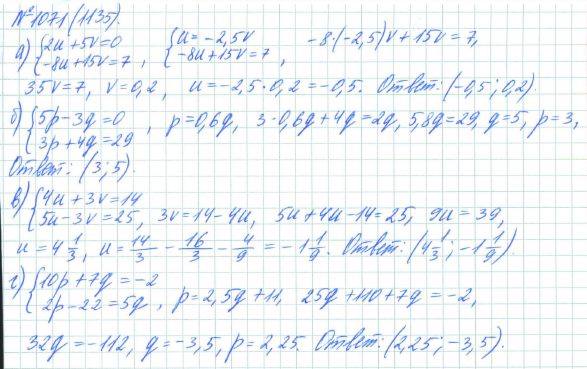 №1071(1135).
а) {2u + 5v = 0, -8u + 15v = 7, {u = -2,5v, -8u + 15v = 7, -8·(-2,5)v + 15v = 7,
35v = 7, v = 0,2, u = -2,5·0,2 = -0,5. Ответ: (-0,5; 0,2).
б) {5p - 3q = 0, 3p + 4q = 29, p = 0,6q, 3·0,6q + 4q = 2q, 5,8q = 29, q = 5, p = 3,
Ответ: (3; 5).
в) {4u + 3v = 14, 5u - 3v = 25, 3v = 14 - 4u, 5u + 4u - 14 = 25, 9u = 39,
u = 4 1/3, u = 14/3 - 16/3 - 4/9 = -1 1/9. Ответ: (4 1/3; -1 1/9).
г) {10p + 7q = -2, 2p - 22 = 5q, p = 2,5q + 11, 25q + 110 + 7q = -2,
32q = -112, q = -3,5, p = 2,25. Ответ: (2,25; -3,5).